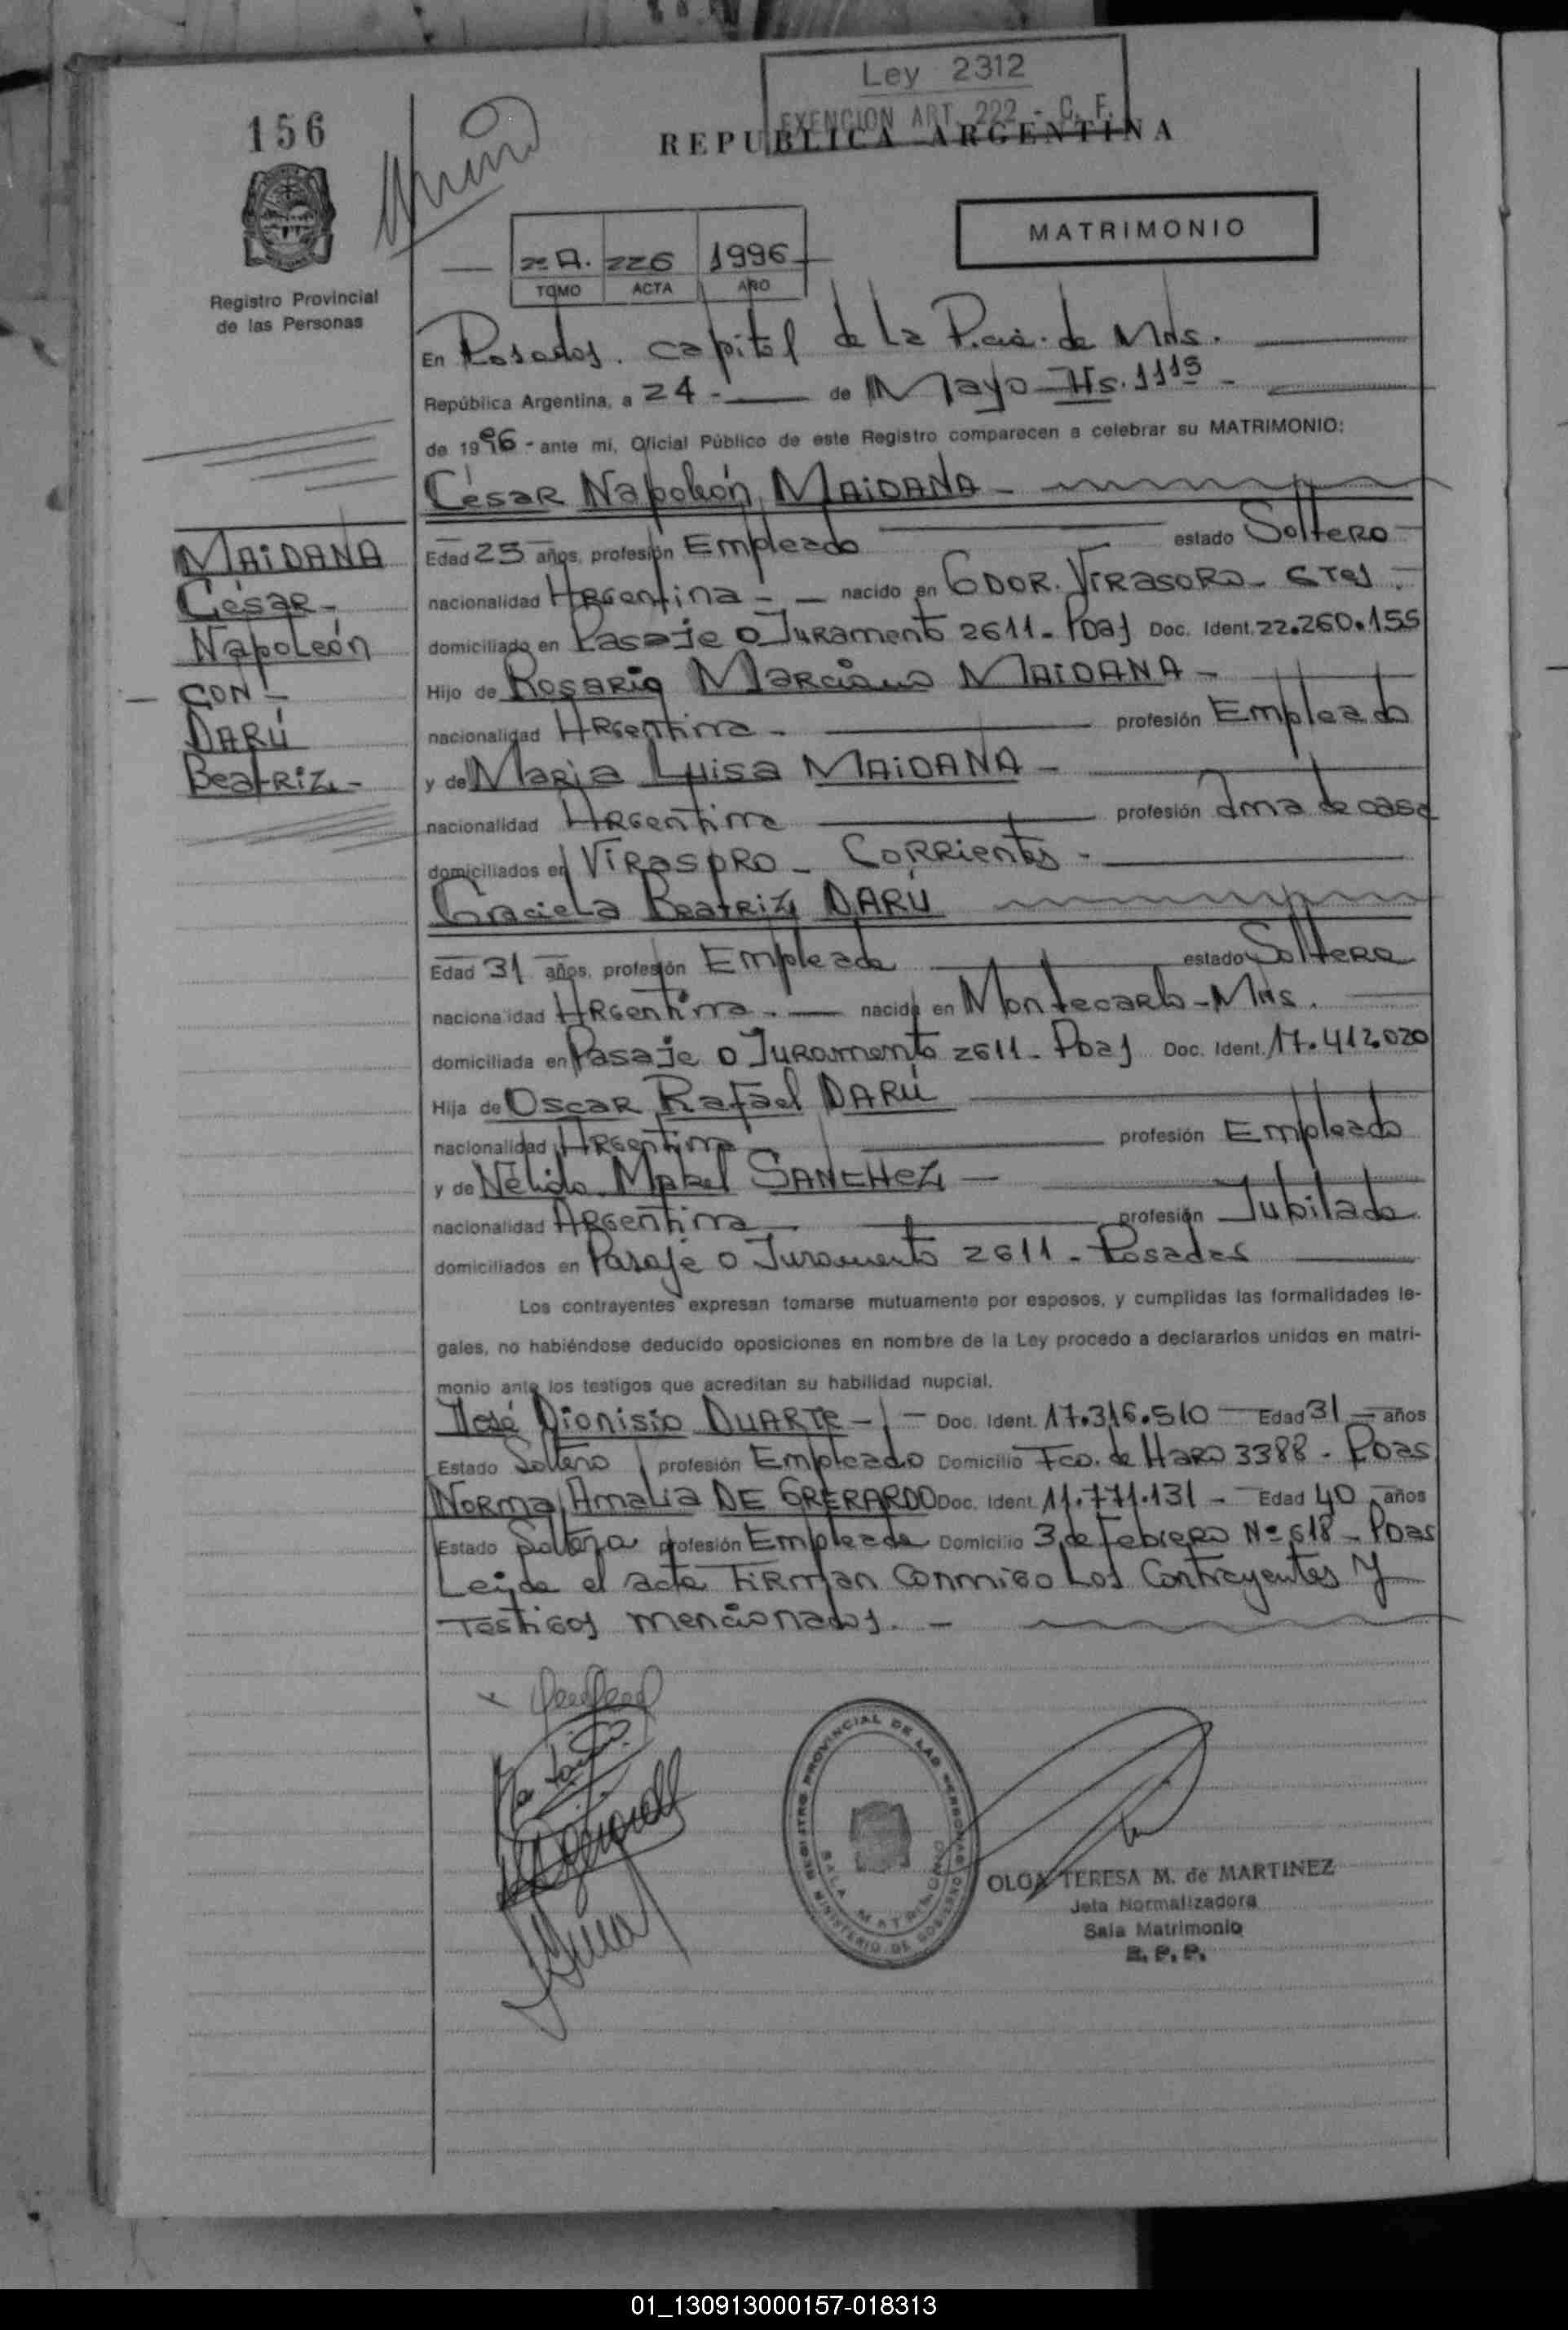 Ley 2312
EXENCION ART. 222 - C. F.
156
REPUBLICA ARGENTINA
MATRIMONIO
2º A. 226 1996
TOMO ACTA AÑO
Registro Provincial
de las Personas
En Posadas. capital de la Pcia. de Mns.
República Argentina, a 24 - de Mayo Hs. 11 15 -
de 1996 - ante mi, Oficial Público de este Registro comparecen a celebrar su MATRIMONIO:
César Napoleón MAIDANA -
Edad 25 años, profesión Empleado estado Soltero
nacionalidad Argentina - - nacido en GDOR. VIRASORO - CTES.
domiciliado en Pasaje O Juramento 2611 - Pdas Doc. Ident. 22.260.155
Hijo de Rosario Marciano MAIDANA -
nacionalidad Argentina - profesión Empleado
y de Maria Luisa MAIDANA -
nacionalidad Argentina profesión Ama de casa
domiciliados en VIRASORO - CORRIENTES -
MAIDANA
César -
Napoleón
CON -
DARÚ
Beatriz -
Graciela Beatriz DARÚ
Edad 31 años, profesión Empleada estado Soltera
nacionalidad Argentina. - nacida en Montecarlo - Mns.
domiciliada en Pasaje O Juramento 2611 - Pdas Doc. Ident. 17.412.020
Hija de Oscar Rafael DARÚ
nacionalidad Argentina profesión Empleado
y de Nélida Mabel SANCHEZ -
nacionalidad Argentina - profesión Jubilada
domiciliados en Pasaje O Juramento 2611 - Posadas
Los contrayentes expresan tomarse mutuamente por esposos, y cumplidas las formalidades le-
gales, no habiéndose deducido oposiciones en nombre de la Ley procedo a declararlos unidos en matri-
monio ante los testigos que acreditan su habilidad nupcial.
José Dionisio DUARTE - - Doc. Ident. 17.316.510 Edad 31 años
Estado Soltero profesión Empleado Domicilio Fco. de Haro 3388 - Pdas
Norma Amalia DE GRERARDO Doc. Ident. 11.771.131 - Edad 40 años
Estado Soltera profesión Empleada Domicilio 3 de Febrero Nº 618 - Pdas
Leída el acta Firman conmigo Los Contrayentes y
Testigos mencionados. -
REGISTRO PROVINCIAL DE LAS PERSONAS
SALA MATRIMONIO
MINISTERIO DE GOBIERNO
OLGA TERESA M. de MARTINEZ
Jefa Normalizadora
Sala Matrimonio
R. P. P.
01_130913000157-018313